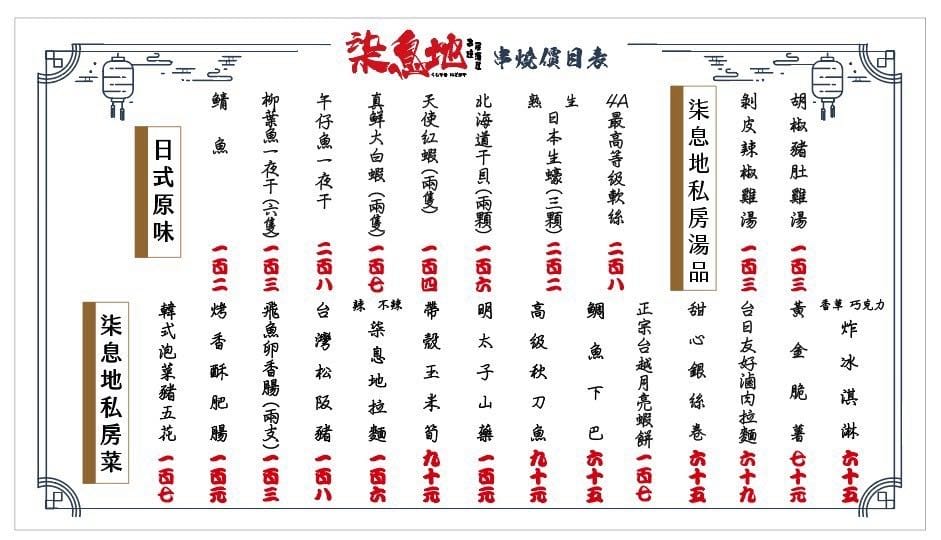 柒息地
串燒
居酒屋
串燒價目表
日式原味
鯖魚 一百二
柳葉魚一夜干(六隻) 一百三
午仔魚一夜干 二百八
真鮮大白蝦(兩隻) 一百七
天使紅蝦(兩隻) 一百四
北海道干貝(兩顆) 一百六
熟 生
日本生蠔(三顆) 二百二
4A最高等級軟絲 二百八
柒息地私房湯品
剝皮辣椒雞湯 一百三
胡椒豬肚雞湯 一百三
柒息地私房菜
韓式泡菜豬五花 一百七
烤香酥肥腸 一百元
飛魚卵香腸(兩支) 一百三
台灣松阪豬 一百八
辣 不辣
柒息地拉麵 一百六
帶殼玉米筍 九十元
明太子山藥 一百元
高級秋刀魚 九十元
鯛魚下巴 六十五
正宗台越月亮蝦餅 一百七
甜心銀絲卷 六十五
台日友好滷肉拉麵 六十九
黃金脆薯 七十元
香草 巧克力
炸冰淇淋 六十五